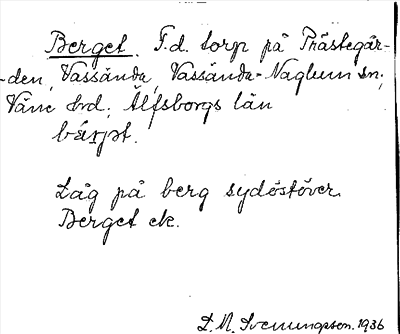 Berget. F.d. torp på Prästegår-
-den, Vassända, Vassända-Naglum sn;
Väne hd; Älfsborgs län
Låg på berg sydöstöver.
Berget ek.
Svenungsson. 1936